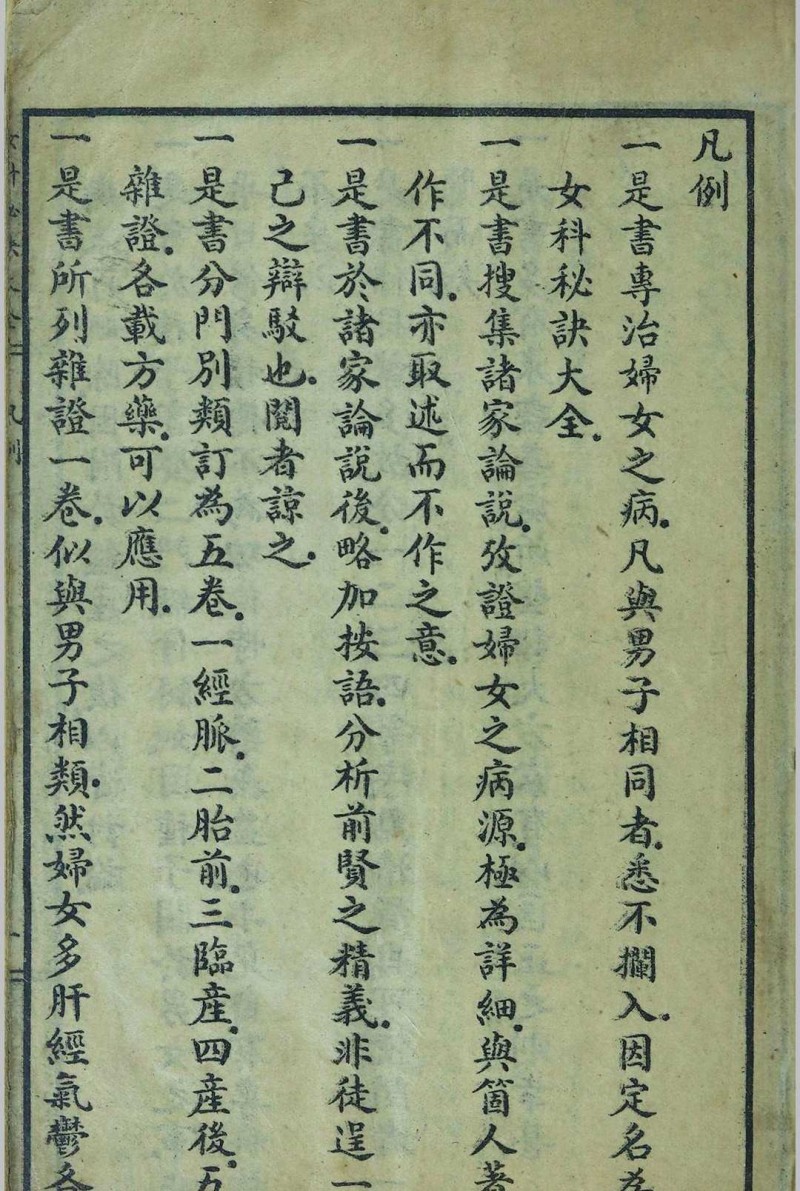 凡例
一是書專治婦女之病.凡與男子相同者.悉不攔入.因定名為
女科秘訣大全.
一是書搜集諸家論說.攷證婦女之病源.極為詳細.與箇人著
作不同.亦取述而不作之意.
一是書於諸家論說後.略加按語.分析前賢之精義.非徒逞一
己之辯駁也.閱者諒之.
一是書分門別類訂為五卷.一經脈.二胎前.三臨產.四產後.五
雜證.各載方藥.可以應用.
一是書所列雜證一卷.似與男子相類.然婦女多肝經氣鬱各